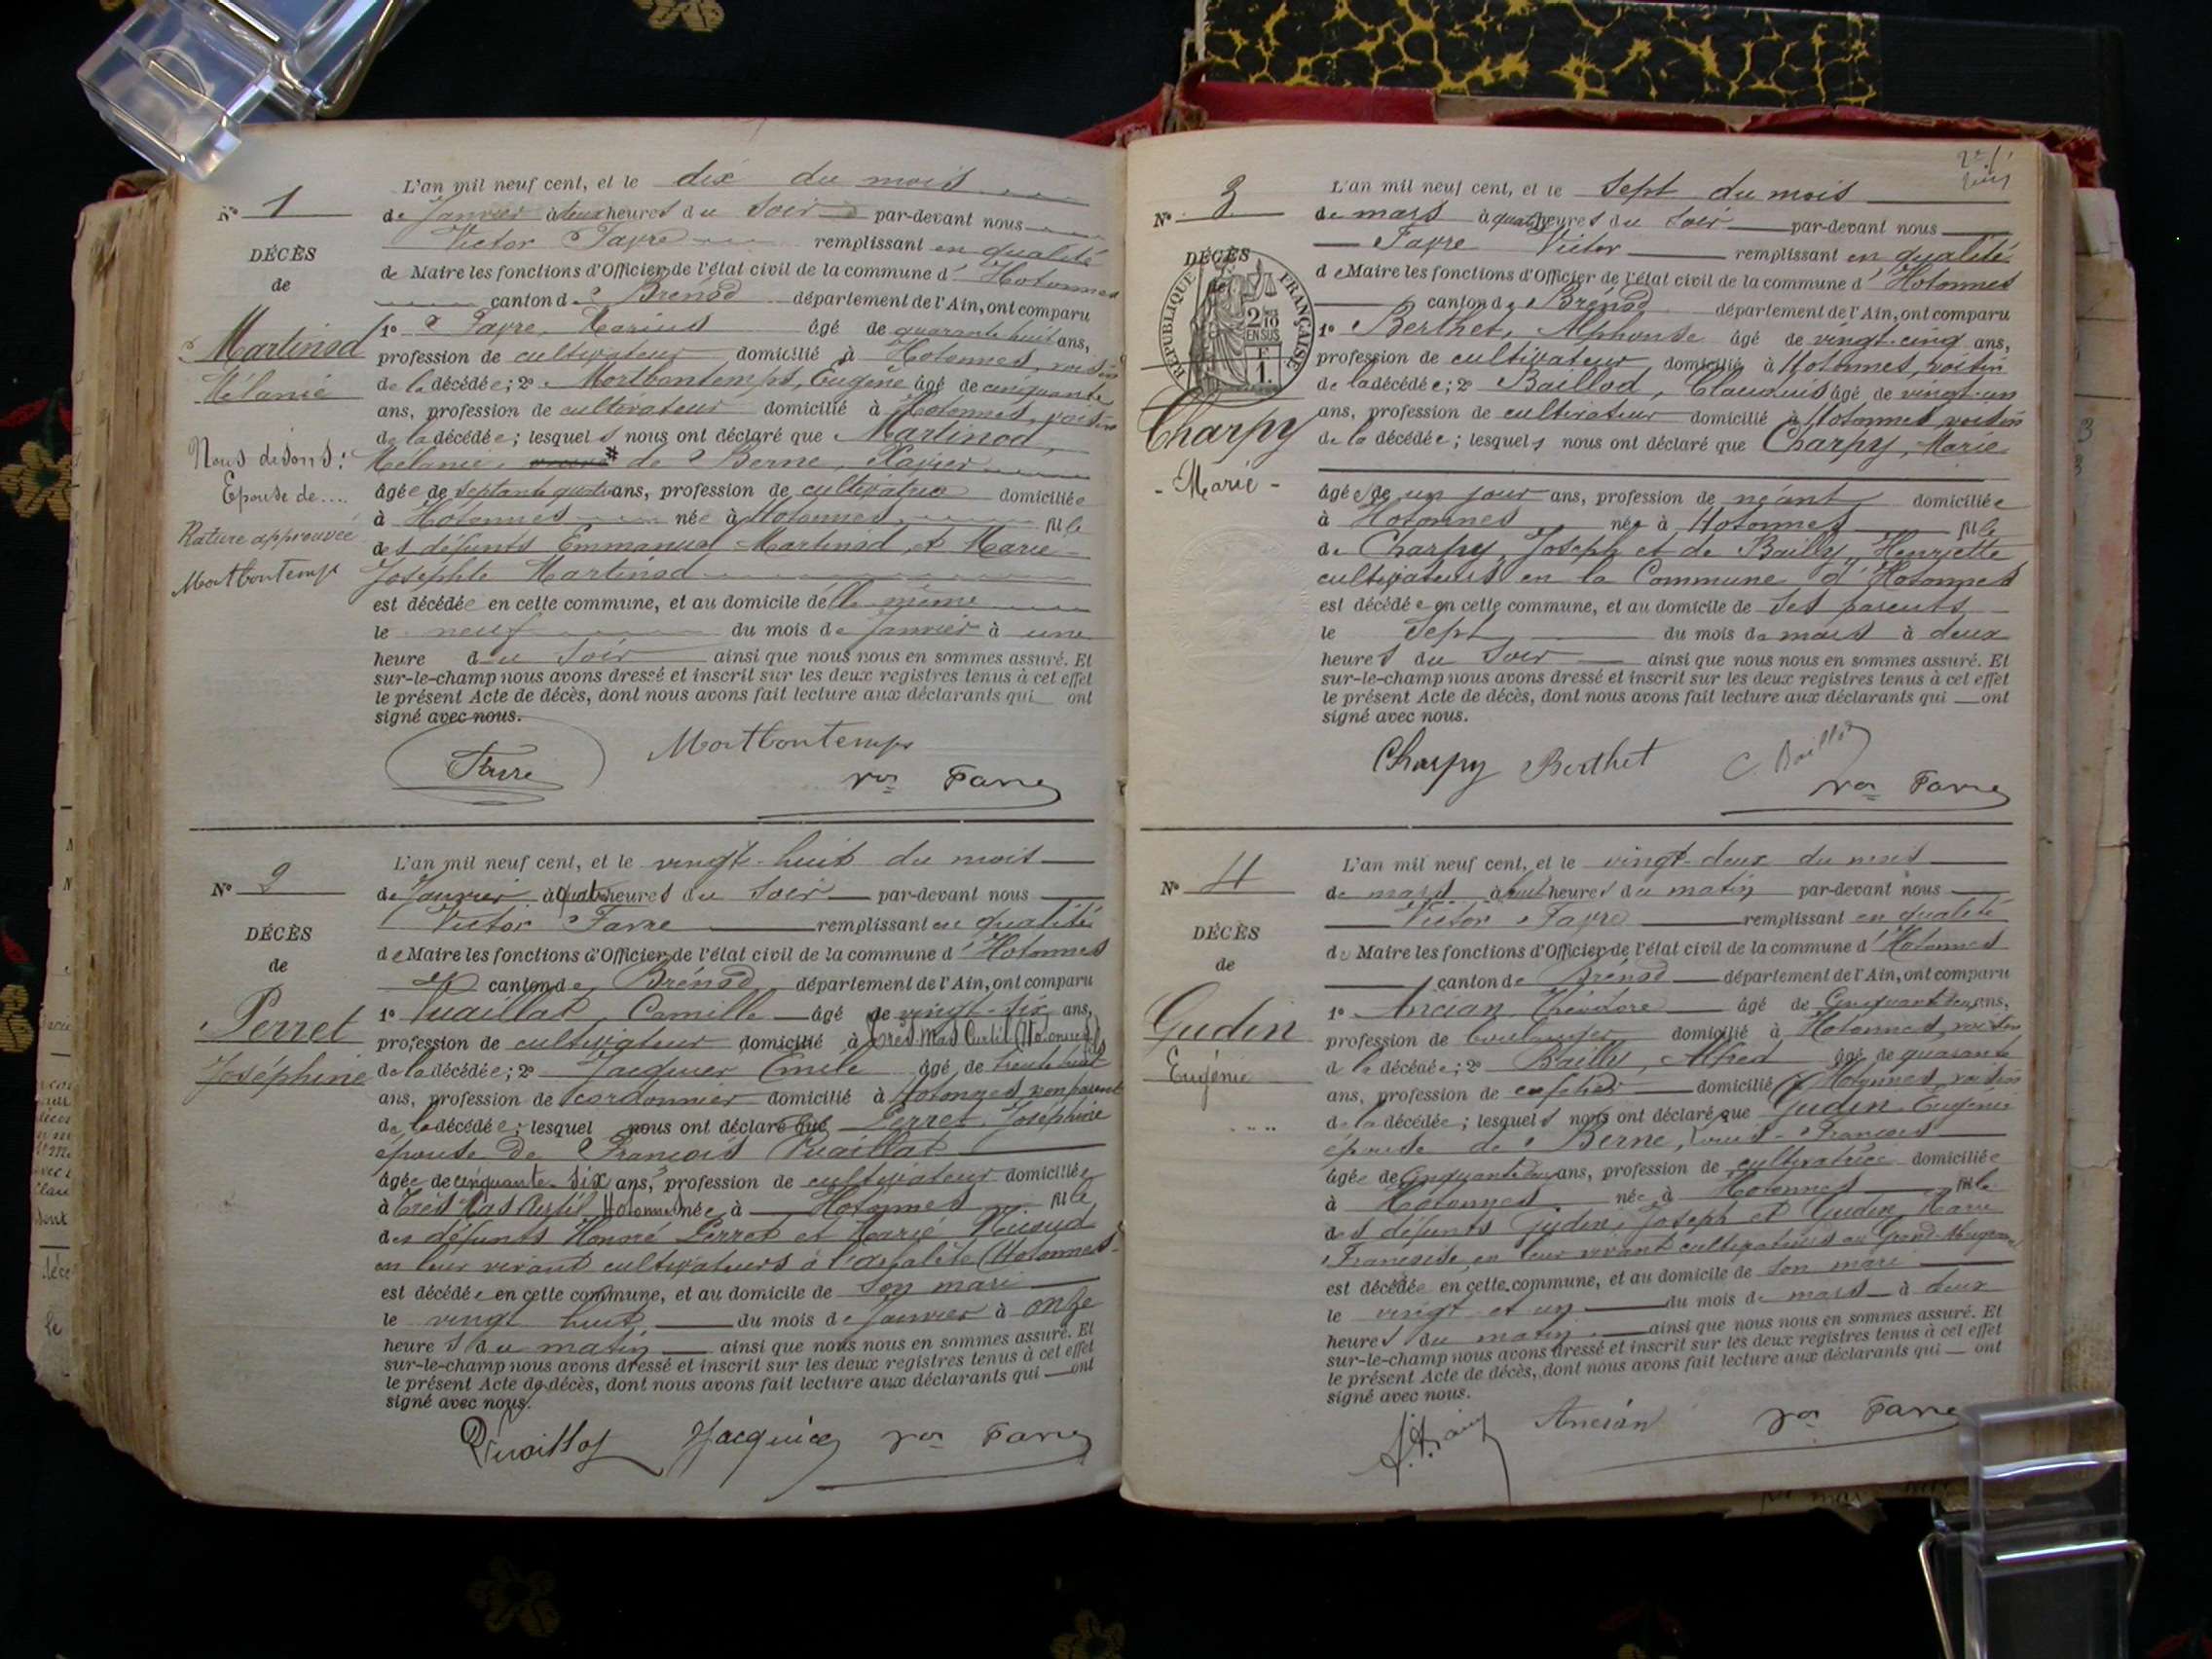 N° 1
DÉCÈS
de
Martinod
Mélanie
Nous disons:
Epouse de....
Rature approuvée
Mortbontemps
L'an mil neuf cent, et le dix du mois
de Janvier à deux heures du soir par-devant nous
Victor Favre remplissant en qualité
de Maire les fonctions d'Officier de l'état civil de la commune d'Hotonnes
canton de Brénod département de l'Ain, ont comparu
1° Favre, Marius âgé de quarante huit ans,
profession de cultivateur domicilié à Hotonnes, voisin
de la décédée; 2° Mortbontemps, Eugène âgé de cinquante
ans, profession de cultivateur domicilié à Hotonnes, voisin
de la décédée; lesquels nous ont déclaré que Martinod,
Mélanie, de Berne, Xavier
âgée de septante quatre ans, profession de cultivatrice domiciliée
à Hotonnes née à Hotonnes fille
des défunts Emmanuel Martinod et Marie
Joséphte Martinod
est décédée en cette commune, et au domicile d'elle même
le neuf du mois de Janvier à une
heure du soir ainsi que nous nous en sommes assuré. Et
sur-le-champ nous avons dressé et inscrit sur les deux registres tenus à cet effet
le présent Acte de décès, dont nous avons fait lecture aux déclarants qui ont
signé avec nous.
Favre Mortbontemps
Vor Favre
N° 2
DÉCÈS
de
Perret
Joséphine
L'an mil neuf cent, et le vingt-huit du mois
de Janvier à quatre heures du soir par-devant nous
Victor Favre remplissant en qualité
de Maire les fonctions d'Officier de l'état civil de la commune d'Hotonnes
canton de Brénod département de l'Ain, ont comparu
1° Vuaillat, Camille âgé de vingt-six ans,
profession de cultivateur domicilié à Très Mas Curtil (Hotonnes) fils
de la décédée; 2° Jacquier Emile âgé de trente huit
ans, profession de cordonnier domicilié à Hotonnes, non parent
de la décédée; lesquel nous ont déclaré que Perret Joséphine
épouse de François Vuaillat
âgée de cinquante-six ans, profession de cultivateur domiciliée
à Très Mas Curtil, Hotonnes née à Hotonnes fille
des défunts Honoré Perret et Marie
en leur vivant cultivateurs à (Hotonnes)
est décédée en cette commune, et au domicile de son mari
le vingt huit du mois de Janvier à onze
heures du matin ainsi que nous nous en sommes assuré. Et
sur-le-champ nous avons dressé et inscrit sur les deux registres tenus à cet effet
le présent Acte de décès, dont nous avons fait lecture aux déclarants qui ont
signé avec nous.
Vuaillat Jacquier Vor Favre
N° 3
DÉCÈS
de
RÉPUBLIQUE FRANÇAISE
2/10
EN SUS
Charpy
- Marie -
L'an mil neuf cent, et le sept du mois
de mars à quatre heures du soir par-devant nous
Favre Victor remplissant en qualité
de Maire les fonctions d'Officier de l'état civil de la commune d'Hotonnes
canton de Brénod département de l'Ain, ont comparu
1° Berthet, Alphonse âgé de vingt-cinq ans,
profession de cultivateur domicilié à Hotonnes, voisin
de la décédée; 2° Baillod, Claudius âgé de vingt-un
ans, profession de cultivateur domicilié à Hotonnes voisin
de la décédée; lesquels nous ont déclaré que Charpy, Marie
âgée de un jour ans, profession de néant domiciliée
à Hotonnes née à Hotonnes fille
de Charpy, Joseph et de Bailly, Henriette
cultivateurs en la Commune d'Hotonnes
est décédée en cette commune, et au domicile de ses parents
le sept du mois de mars à deux
heures du soir ainsi que nous nous en sommes assuré. Et
sur-le-champ nous avons dressé et inscrit sur les deux registres tenus à cet effet
le présent Acte de décès, dont nous avons fait lecture aux déclarants qui ont
signé avec nous.
Charpy Berthet C. Baillod
Vor Favre
N° 4
DÉCÈS
de
Gudin
Eugénie
L'an mil neuf cent, et le vingt-deux du mois
de mars à huit heures du matin par-devant nous
Victor Favre remplissant en qualité
de Maire les fonctions d'Officier de l'état civil de la commune d'Hotonnes
canton de Brénod département de l'Ain, ont comparu
1° Ancian, Théodore âgé de Cinquante deux ans,
profession de boulanger domicilié à Hotonnes, voisin
de la décédée; 2° Bailly, Alfred âgé de quarante
ans, profession de domicilié à Hotonnes, voisin
de la décédée; lesquels nous ont déclaré que Gudin Eugénie
épouse de Berne, Louis-François
âgée de Cinquante deux ans, profession de cultivatrice domiciliée
à Hotonnes née à Hotonnes fille
des défunts Gudin, Joseph et Gudin, Marie
Françoise, en leur vivant cultivateurs au Grand
est décédée en cette commune, et au domicile de son mari
le vingt et un du mois de mars à deux
heures du matin ainsi que nous nous en sommes assuré. Et
sur-le-champ nous avons dressé et inscrit sur les deux registres tenus à cet effet
le présent Acte de décès, dont nous avons fait lecture aux déclarants qui ont
signé avec nous.
Ancian Vor Favre